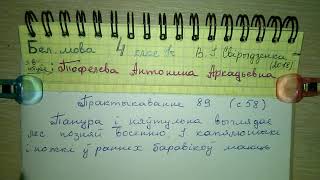 Бел. мова 4 клас 1ч В. І. Свірыдзенка
(2018)
Тофелева Антонина Аркадьевна
Практыкаванне 89 (с 58)
Панура і няўтульна выглядае
лес позняй восенню. І капялюшыкі
і ножкі ў ранніх баравікоў маюць